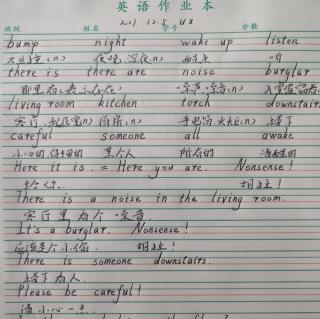 英语作业本
班级 姓名 学号 分数
2021 12.8 U8
bump night wake up listen
夜晚,深夜(n) 听
there is there are noise burglar
那里有 噪声,噪音(n)
living room kitchen torch downstair
客厅,起居室(n) 厨房(n) 手电筒,火炬(n) 楼下
careful someone all awake
小心的,仔细的 某个人 所有的 清醒的
Here it is. = Here you are. Nonsense!
给你. 胡扯!
There is a noise in the living room.
客厅里有个噪音.
It's a burglar. Nonsense!
应该是个小偷. 胡扯!
There is someone downstairs.
楼下有人.
Please be careful!
请小心一点.